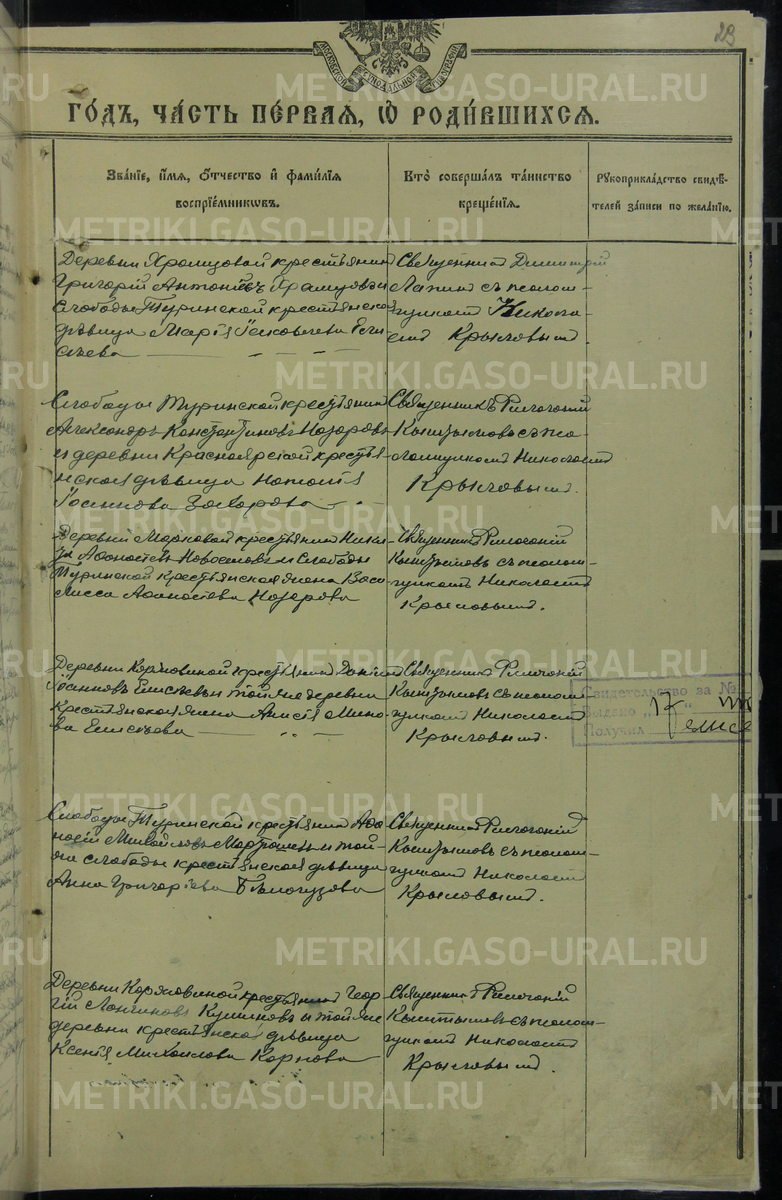 23
МОСКОВСКОЙ СѴНОДАЛЬНОЙ ТѴПОГРАФІИ
ГО́ДЪ, ЧА́СТЬ ПЕ́РВАѦ, Ѡ РОДИ́ВШИХСѦ.
Зва́нїе, и́мѧ, ѻ́тчество и҆ фамилїѧ
воспрїе́мникѡвъ.
Кто̀ соверша́лъ та́инство
креще́нїѧ.
Рукоприкла́дство свидѣ́-
телей за́писи по жела́нїю.
Деревни Храмцовой крестьянин
Григорій Антоніевъ Храмцовъ и
Слободы Туринской крестьянская
дѣвица Марія Іаковлева Ели
сѣева
Священникъ Димитрій
Лапинъ съ псалом-
щикомъ Никола-
емъ Крыловымъ.
Слободы Туринской крестьянин
Александръ Константиновъ Назаровъ
и деревни Красноярской кресть-
янская дѣвица Наталія
Іоаннова Захарова
Священникъ Филогоній
Кыштымовъ съ пса-
ломщикомъ Николаемъ
Крыловымъ.
Деревни Марковой крестьянин Ники
та Афанасіевъ и Слободы
Туринской крестьянская жена Васи
лисса Афанасіева Назарова
Священникъ Филогоній
Кыштымовъ съ псалом-
щикомъ Николаемъ
Крыловымъ.
Деревни Коржавиной крестьянинъ Даніилъ
Іоанновъ Елисѣевъ и той же деревни
крестьянская жена Анисія Мино-
ва Елисѣева
Священникъ Филогоній
Кыштымовъ съ псалом
щикомъ Николаемъ
Крыловымъ.
Свидетельство за №
Выдано „17“
Получил Елисе
Слободы Туринской крестьянин Афа
насій Михайловъ и той-
же слободы крестьянская дѣвица
Анна Григоріева Бѣлогузова
Священникъ Филогоній
Кыштымовъ съ псалом-
щикомъ Николаемъ
Крыловымъ.
Деревни Коржавиной крестьянинъ Геор
гій Лонгиновъ и той же
деревни крестьянская дѣвица
Ксенія Михаилова
Священникъ Филогоній
Кыштымовъ съ псалом-
щикомъ Николаемъ
Крыловымъ.
METRIKI.GASO-URAL.RU